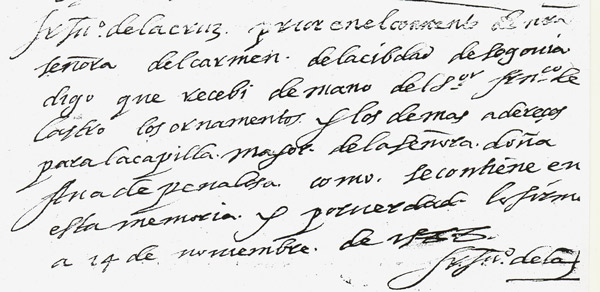 fr Ju.º de la cruz. prior en el convento de nra
señora del carmen. de la cibdad de segovia
digo que recebi de mano del S.or fr.n.co de
castro los ornamentos y los demas adereços
para la capilla mayor. de la señora doña
Ana de penalosa. como. se contiene en
esta memoria. y por verdad lo firme
a 14 de noviembre. de
fr. Ju.º de la